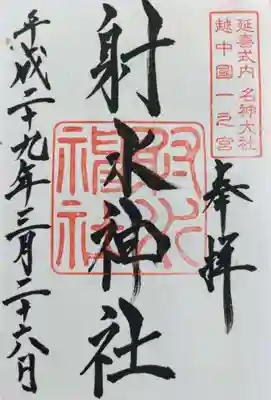 延喜式内 名神大社
越中國一之宮
奉拝
射水神社
射水神社
平成二十九年三月二十六日